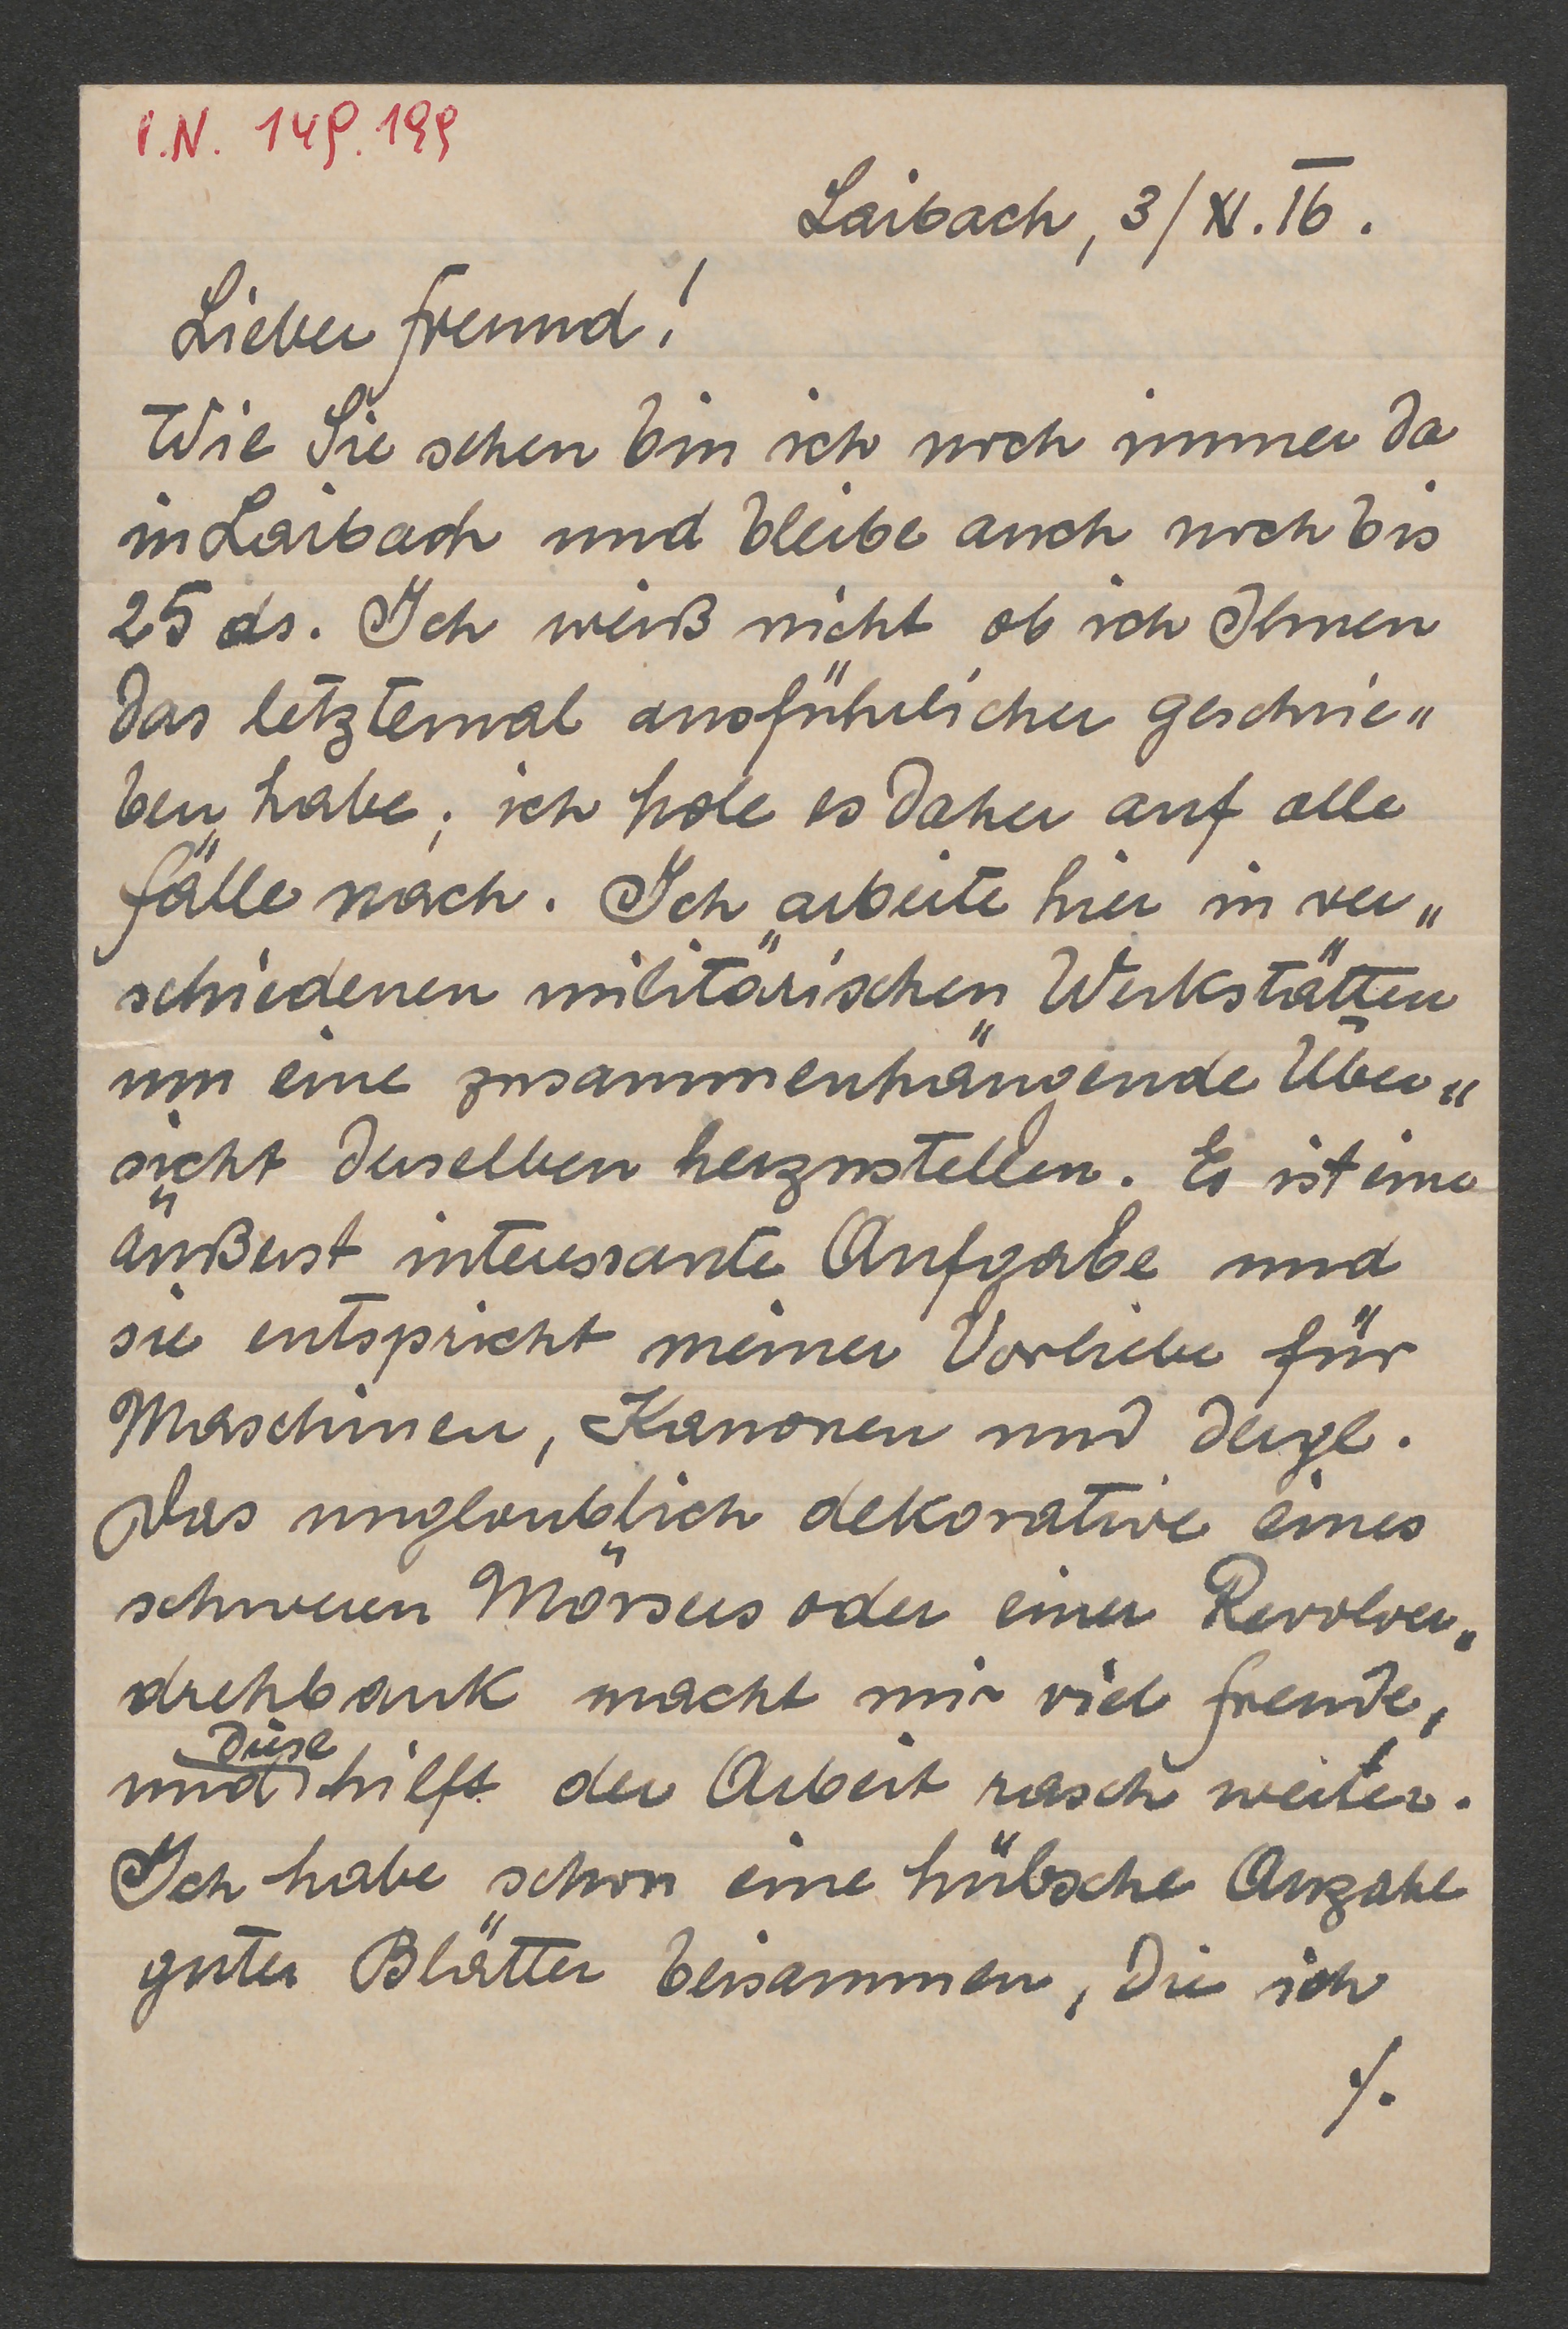 I.N. 149.199
Laibach, 3/XI.16.
Lieber Freund!
Wie Sie sehen bin ich noch immer da
in Laibach und bleibe auch noch bis
25 ds. Ich weiß nicht ob ich Ihnen
das letztemal ausführlicher geschrie„
ben habe; ich hole es daher auf alle
Fälle nach. Ich arbeite hier in ver„
schiedenen militärischen Werkstätten
um eine zusammenhängende Über„
sicht derselben herzustellen. Es ist eine
äußerst interessante Aufgabe und
sie entspricht meiner Vorliebe für
Maschinen, Kanonen und dergl.
Das unglaublich dekorative eines
schweren Mörsers oder einer Revolver„
drehbank macht mir viel Freude,
diese
und hilft der Arbeit rasch weiter.
Ich habe schon eine hübsche Anzahl
guter Blätter beisammen, die ich
./.